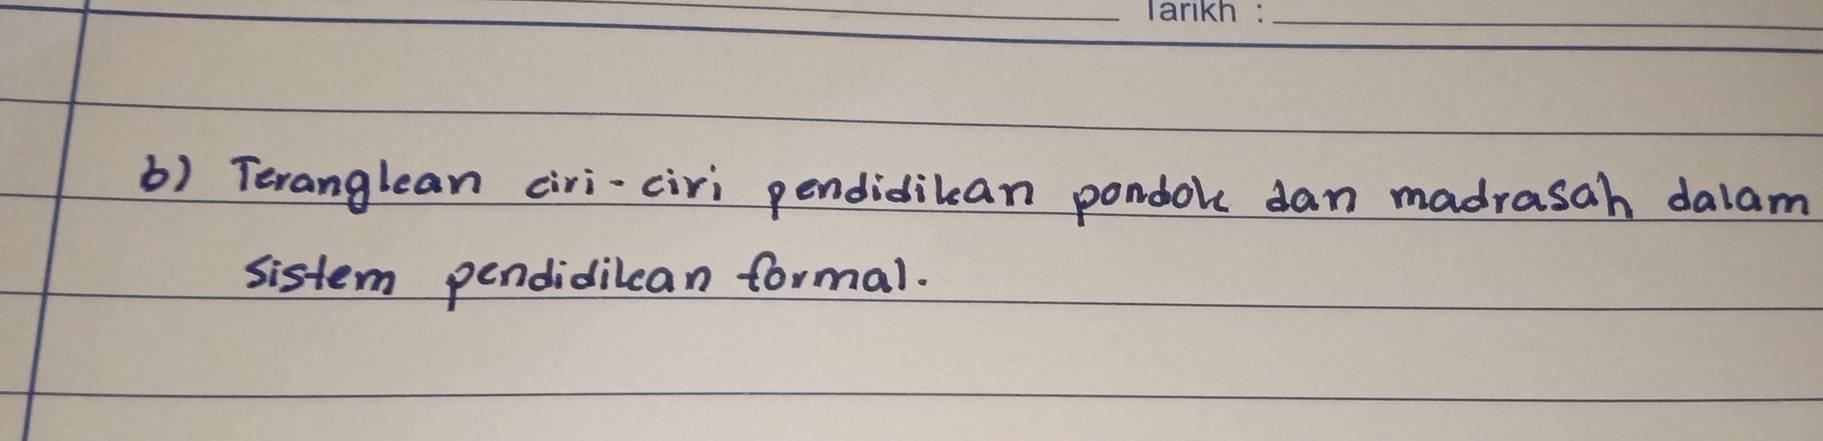 Tarikh :
b) Terangkan ciri-ciri pendidikan pondok dan madrasah dalam
sistem pendidikan formal.